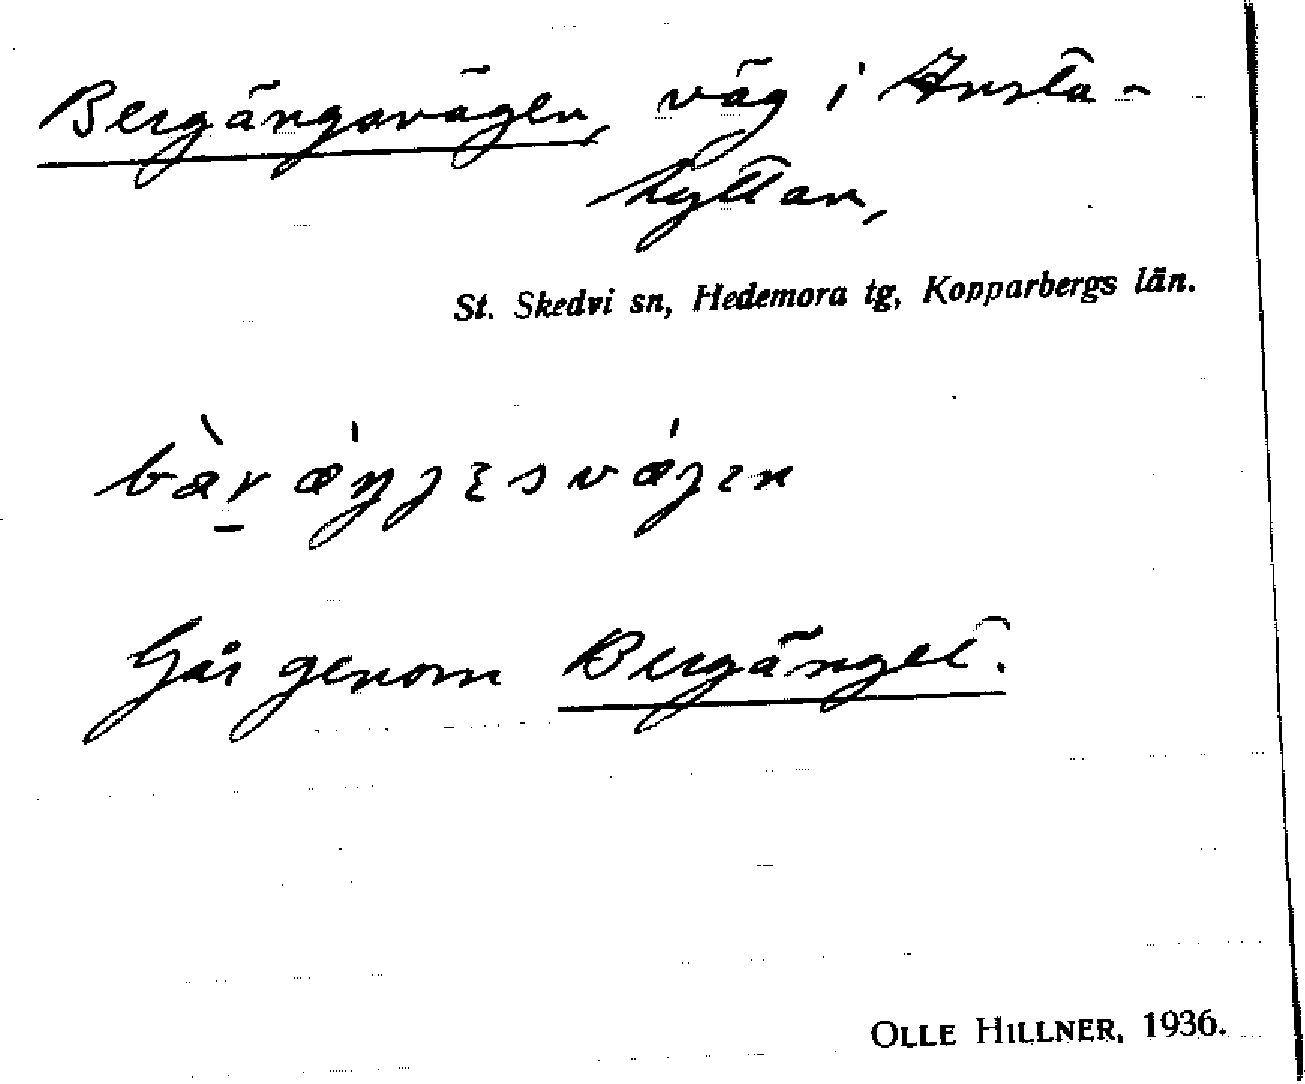 Bergängsvägen, väg i Kusta-
hyttan,
St. Skedvi sn, Hedemora tg, Kopparbergs län.
Går genom Bergänget.
OLLE HILLNER, 1936.